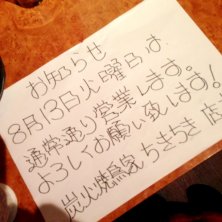 お知らせ
8月13日火曜日は
通常通り営業します。
よろしくお願い致します!
炭火焼鳥家ちきちき 店